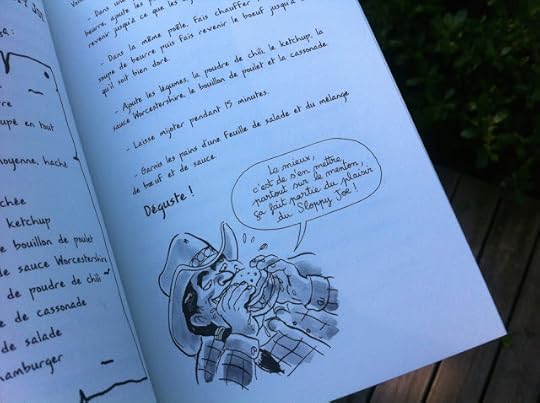 :
re
upé en tout
oyenne, haché
chée
ketchup
e bouillon de poulet
e sauce Worcestershire
de poudre de chili
e de cassonade
de salade
hamburger
beurre, ajuste les p
revenir jusqu'à ce que les
- Dans la même poêle fais chauffer
soupe de beurre puis fais revenir le boeuf jusqu'à
qu'il soit bien doré.
- Ajoute les légumes, la poudre de chili, le ketchup, la
sauce Worcestershire, le bouillon de poulet et la cassonade.
- Laisse mijoter pendant 15 minutes.
- Garnis les pains d'une feuille de salade et du mélange
de boeuf et de sauce.
Déguste !
Le mieux,
c'est de s'en mettre
partout sur le menton,
ça fait partie du plaisir
du Sloppy Joe !